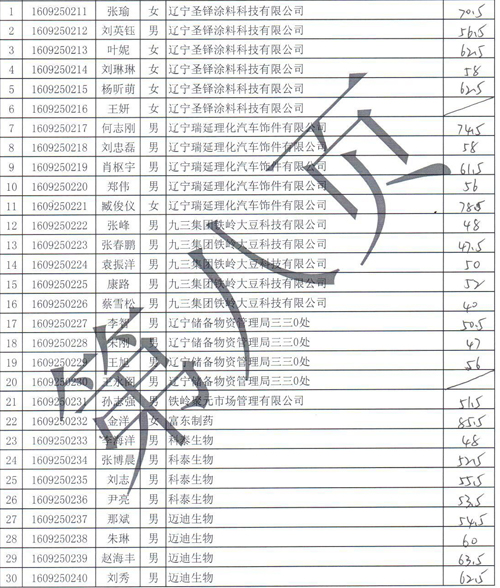 1 1609250211 张瑜 女 辽宁圣铎涂料科技有限公司 70.5
2 1609250212 刘英钰 男 辽宁圣铎涂料科技有限公司 56.5
3 1609250213 叶妮 女 辽宁圣铎涂料科技有限公司 62.5
4 1609250214 刘琳琳 女 辽宁圣铎涂料科技有限公司 58
5 1609250215 杨昕萌 女 辽宁圣铎涂料科技有限公司 62.5
6 1609250216 王妍 女 辽宁圣铎涂料科技有限公司
7 1609250217 何志刚 男 辽宁瑞延理化汽车饰件有限公司 74.5
8 1609250218 刘忠磊 男 辽宁瑞延理化汽车饰件有限公司 58
9 1609250219 肖枢宇 男 辽宁瑞延理化汽车饰件有限公司 61.5
10 1609250220 郑伟 男 辽宁瑞延理化汽车饰件有限公司 56
11 1609250221 臧俊仪 女 辽宁瑞延理化汽车饰件有限公司 78.5
12 1609250222 张峰 男 九三集团铁岭大豆科技有限公司 48
13 1609250223 张春鹏 男 九三集团铁岭大豆科技有限公司 47.5
14 1609250224 袁振洋 男 九三集团铁岭大豆科技有限公司 50
15 1609250225 康路 男 九三集团铁岭大豆科技有限公司 52
16 1609250226 蔡雪松 男 九三集团铁岭大豆科技有限公司 40
17 1609250227 李 男 辽宁储备物资管理局三三0处 50.5
18 1609250228 男 辽宁储备物资管理局三三0处 47
19 1609250229 王旭 男 辽宁储备物资管理局三三0处 56
20 1609250230 王永 男 辽宁储备物资管理局三三0处
21 1609250231 孙志强 男 铁岭聚元市场管理有限公司 51.5
22 1609250232 金洋 女 富东制药 85.5
23 1609250233 李海洋 男 科泰生物 48
24 1609250234 张博晨 男 科泰生物 52.5
25 1609250235 刘志 男 科泰生物 55.5
26 1609250236 尹亮 男 科泰生物 53.5
27 1609250237 那斌 男 迈迪生物 54.5
28 1609250238 朱琳 男 迈迪生物 60
29 1609250239 赵海丰 男 迈迪生物 63.5
30 1609250240 刘秀 男 迈迪生物 62.5
第八页